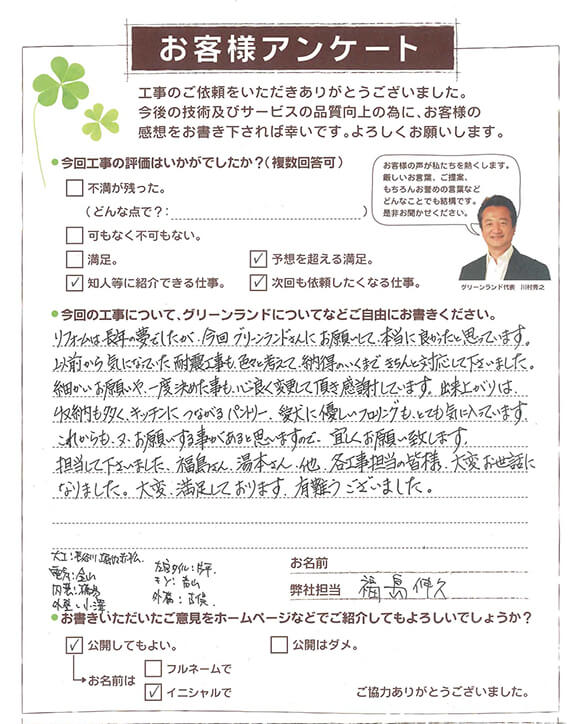 お客様アンケート
工事のご依頼をいただきありがとうございました。
今後の技術及びサービスの品質向上の為に、お客様の
感想をお書き下されば幸いです。よろしくお願いします。
●今回工事の評価はいかがでしたか？（複数回答可）
□ 不満が残った。
（どんな点で？： ）
□ 可もなく不可もない。
□ 満足。 ☑ 予想を超える満足。
☑ 知人等に紹介できる仕事。 ☑ 次回も依頼したくなる仕事。
お客様の声が私たちを熱くします。
厳しいお言葉、ご提案、
もちろんお誉めの言葉など
どんなことでも結構です。
是非お聞かせください。
グリーンランド代表 川村秀之
●今回の工事について、グリーンランドについてなどご自由にお書きください。
リフォームは長年の夢でしたが、今回グリーンランドさんにお願いして、本当に良かったと思っています。
以前から気になっていた耐震工事も、色々と考えて、納得のいくまできちんと対応して下さいました。
細かいお願いや、一度決めた事も、心良く変更して頂き感謝しています。出来上がりは、
収納も多く、キッチンにつながるパントリー、愛犬に優しいフロリングも、とても気に入っています。
これからも、又、お願いする事があると思いますので、宜しくお願い致します。
担当して下さいました、福島さん、湯本さん、他、各工事担当の皆様、大変お世話に
なりました。大変、満足しております。有難うございました。
大工：長谷川
電気：金山
内装：
外壁：小澤
左官タイル：
外構：
お名前
弊社担当 福島伸久
●お書きいただいたご意見をホームページなどでご紹介してもよろしいでしょうか？
☑ 公開してもよい。 □ 公開はダメ。
お名前は □ フルネームで
☑ イニシャルで
ご協力ありがとうございました。